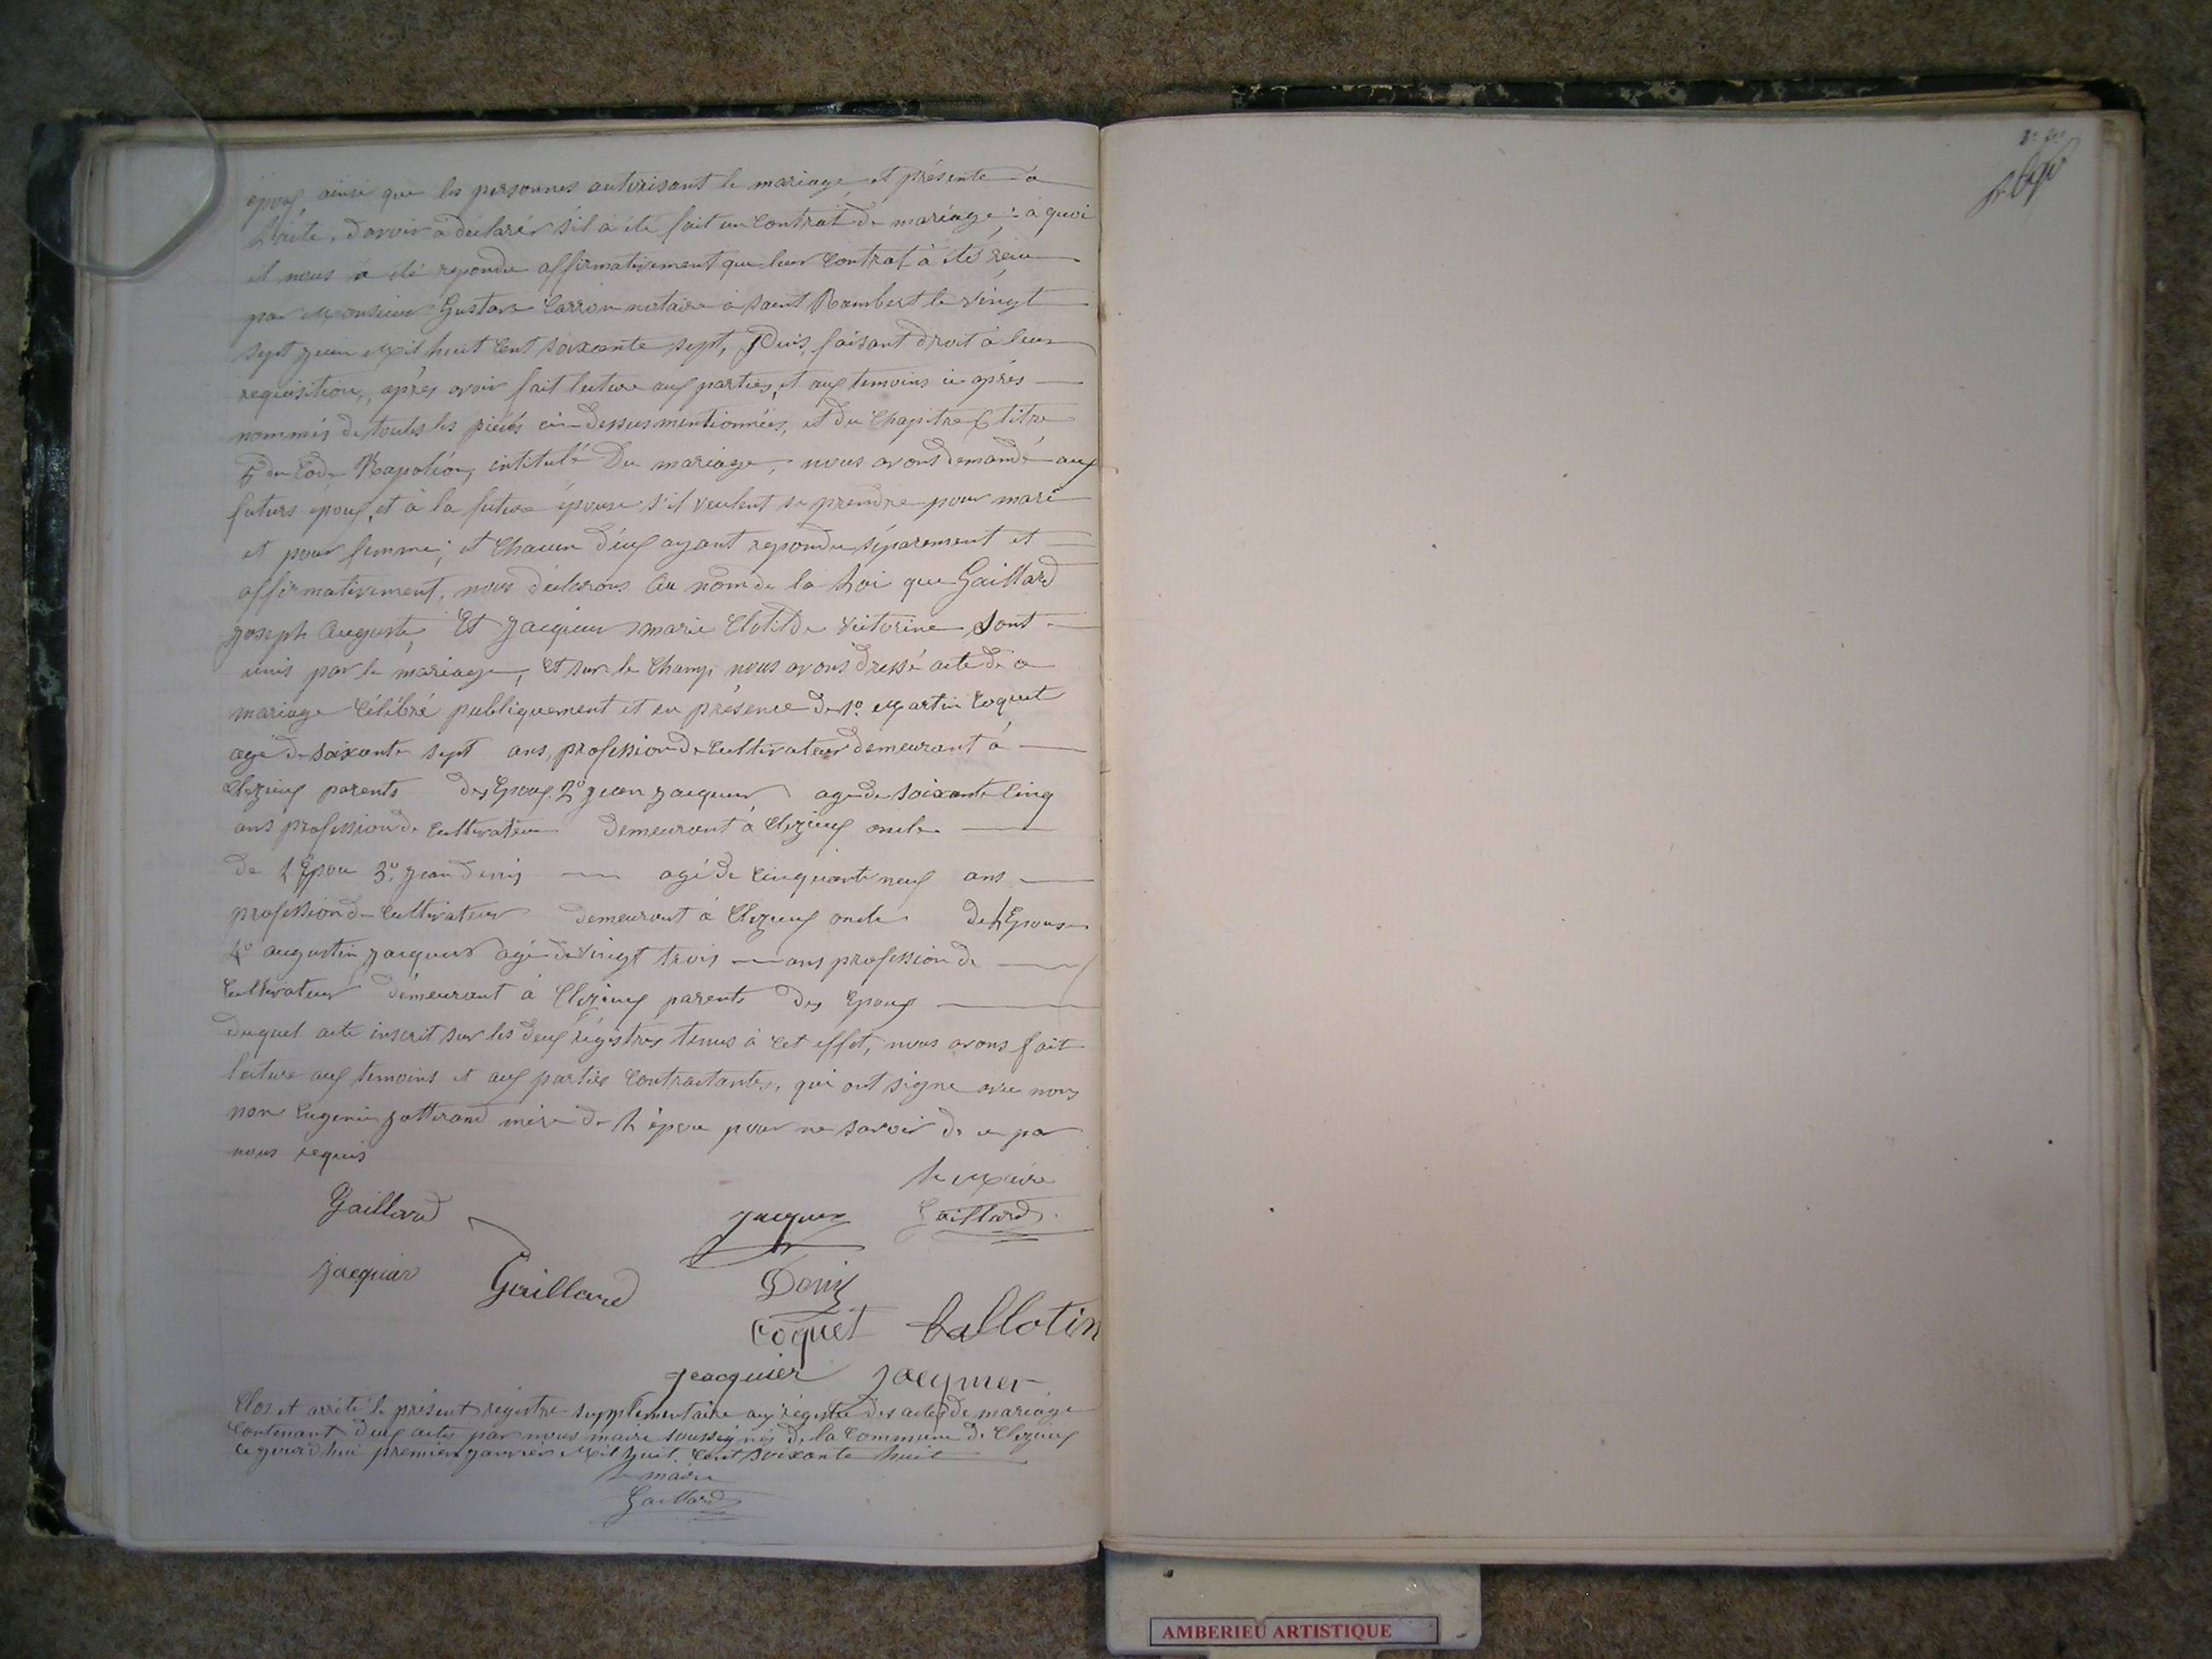 époux ainsi que les personnes autorisant le mariage et présente à
d'avoir a déclarér s'il à été fait un Contrat de mariage : a quoi
il nous a été repondu affirmativement que leur Contrat à été reçu
par Monsieur Gustave Carron notaire à Saint Rambert le vingt
sept juin Mil huit Cent soixante sept, Puis, faisant droit à leur
requisition, après avoir fait lecture aux parties, et aux temoins ci après
nommés de toutes les pieces ci-dessus mentionnées, et du Chapitre 6 titre
5 du Code Napoléon, intitulé Du mariage, nous avons demandé aux
futurs époux, et à la future épouse s'il veulent se prendre pour mari
et pour femme; et Chacun d'eux ayant repondu séparement et
affirmativement, nous déclarons Au nom de la Loi que Gaillard
Joseph Auguste, Et Jacquier Marie Clotilde Victorine sont
unis par le mariage, Et sur le Champ nous avons dressé acte de ce
mariage Célébré publiquement et en présence de 1º Martin Coquet
agé de soixante sept ans, profession de Cultivateur demeurant à
Clezieux parents des Epoux. 2º Jean Jacquier agé de soixante cinq
ans profession de Cultivateur demeurant à Clezieux oncle
de L'Epou 3º. Jean Denis agé de Cinquante neuf ans
profession de Cultivateur demeurant à Clezieux oncle de L'Epouse
4º augustin Jacquier agé de vingt trois ans profession de
Cultivateur demeurant à Clezieux parents des Epoux
duquel acte inscrit sur les deux régistres tenus à cet effet, nous avons fait
lecture aux temoins et aux parties Contractantes, qui ont signe avec nous
non Eugenie mère de L'épou pour ne savoir de ce par
nous requis
Le Maire
Gaillard Jacquier Gaillard
Jacquier Gaillard Denis
Coquet Ballotin
Jeacquier Jacquier
Clos et arrété le présent registre supplémentaire aux régistre des actes de mariage
Contenant deux actes par nous maire soussignés de la Commune de Clezieux
ce jourd'hui premier janvier Mil huit Cent soixante huit
le maire
Gaillard
AMBERIEU ARTISTIQUE